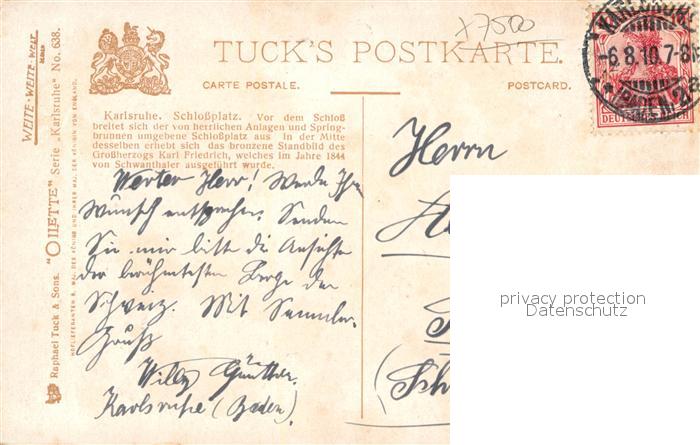 x7500
TUCK'S POSTKARTE.
CARTE POSTALE.
POSTCARD.
KARLSRUHE
-6.8.10.7-8
(BADEN)
DEUTSCHES REICH
Karlsruhe. Schloßplatz. Vor dem Schloß
breitet sich der von herrlichen Anlagen und Spring-
brunnen umgebene Schloßplatz aus In der Mitte
desselben erhebt sich das bronzene Standbild des
Großherzogs Karl Friedrich, welches im Jahre 1844
von Schwanthaler ausgeführt wurde.
Werter Herr! Werde Ihr
Wunsch entsprechen. Senden
Sie mir bitte die Ansichten
der berühmtesten Berge der
Schweiz. Mit Sammler-
Gruß
Willy Günther.
Karlsruhe (Baden).
Herrn
(Sch
WEITE-WEITE-WELT
Raphael Tuck & Sons. "OILETTE" Serie „Karlsruhe" No. 638.
HOFLIEFERANTEN S. MAJ. DER KÖNIG UND IHRER MAJ. DER KÖNIGIN VON ENGLAND.
privacy protection
Datenschutz